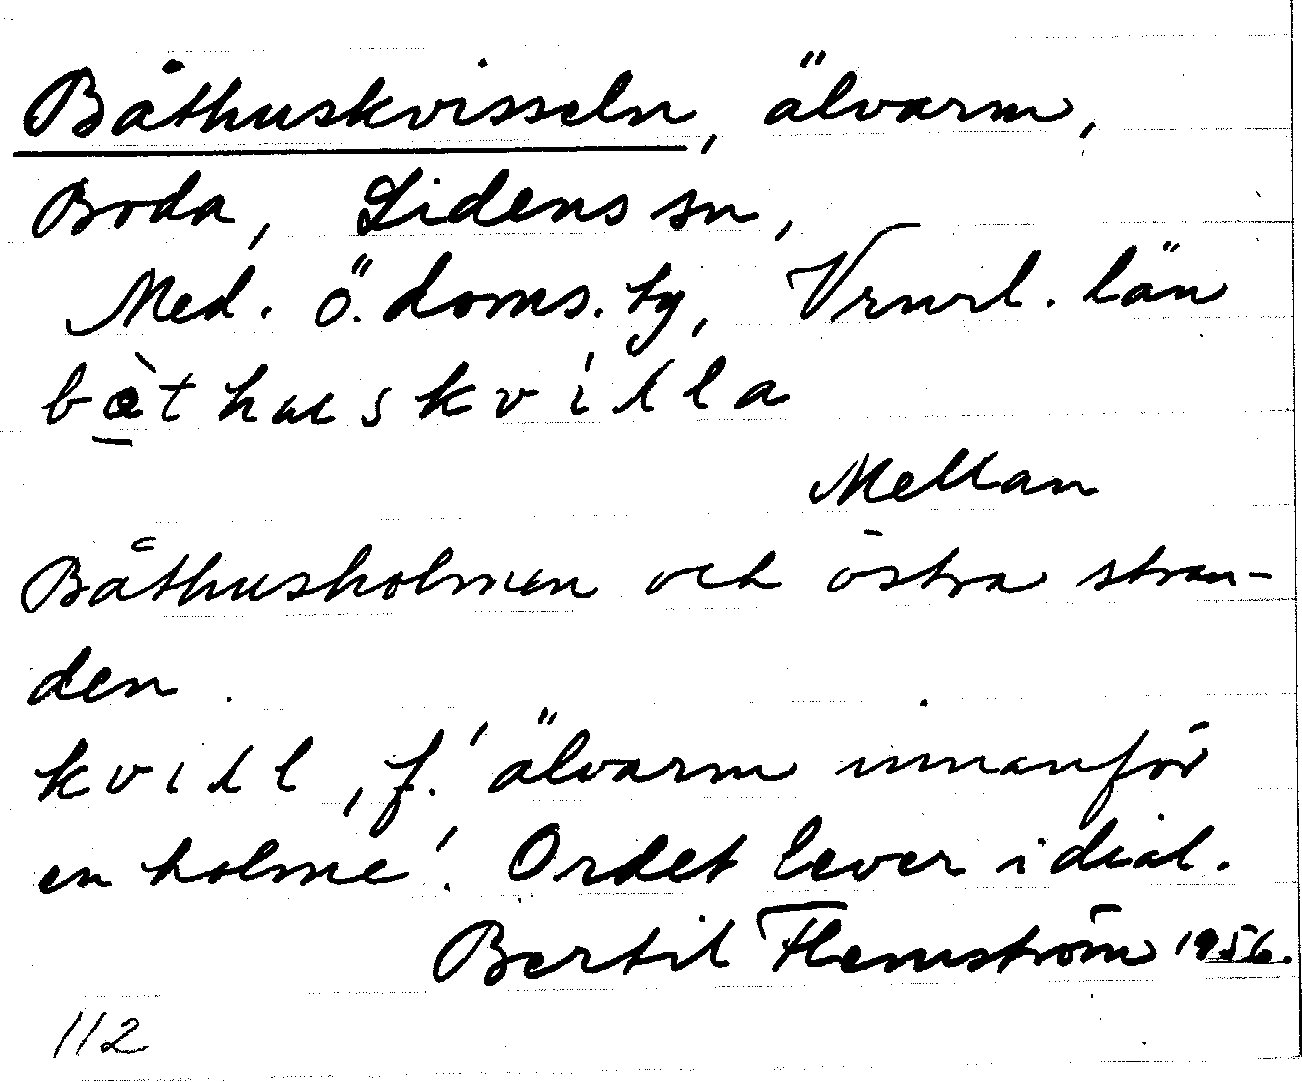 Båthuskvisseln, älvarm,
Boda, Lidens sn,
Med. ö. doms. tg, Vrnrl. län
bàthuskvilla
Mellan
Båthusholmen och östra stran-
den.
kvill, f. 'älvarm innanför
en holme'. Ordet lever i dial.
Bertil Flemström 1956.
112